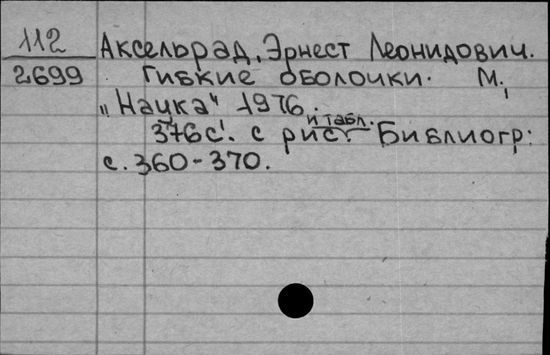 112
2699
Аксельрад, Эрнест Леонидович.
Гибкие оболочки. М.,
„Наука" 1976.
376с. с рис. и табл. Библиогр:
с. 360-370.